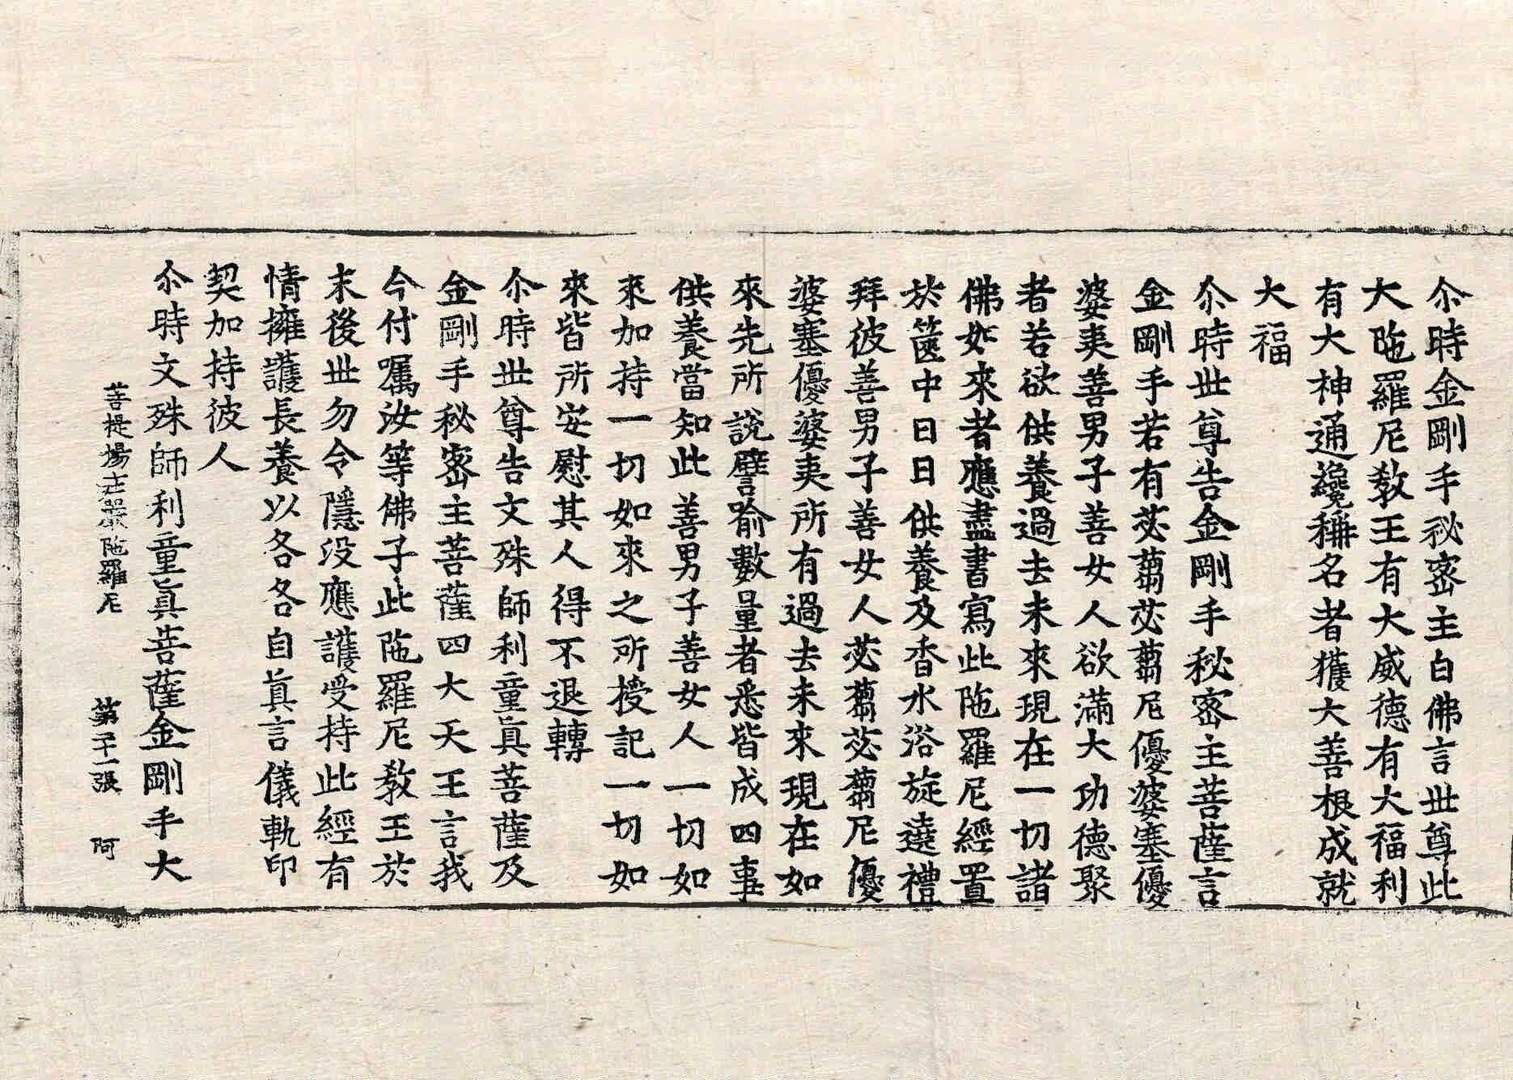 尒時金剛手秘密主白佛言世尊此
大陁羅尼教王有大威德有大福利
有大神通纔稱名者獲大善根成就
大福
尒時世尊告金剛手秘密主菩薩言
金剛手若有苾蒭苾蒭尼優婆塞優
婆夷善男子善女人欲滿大功德聚
者若欲供養過去未來現在一切諸
佛如來者應盡書寫此陁羅尼經置
於篋中日日供養及香水浴旋遶禮
拜彼善男子善女人苾蒭苾蒭尼優
婆塞優婆夷所有過去未來現在如
來先所說譬喻數量者悉皆成四事
供養當知此善男子善女人一切如
來加持一切如來之所授記一切如
來皆所安慰其人得不退轉
尒時世尊告文殊師利童眞菩薩及
金剛手秘密主菩薩四大天王言我
今付囑汝等佛子此陁羅尼教王於
末後世勿令隱没應護受持此經有
情擁護長養以各各自眞言儀軌印
契加持彼人
尒時文殊師利童眞菩薩金剛手大
菩提場莊嚴陁羅尼 第十一張 阿